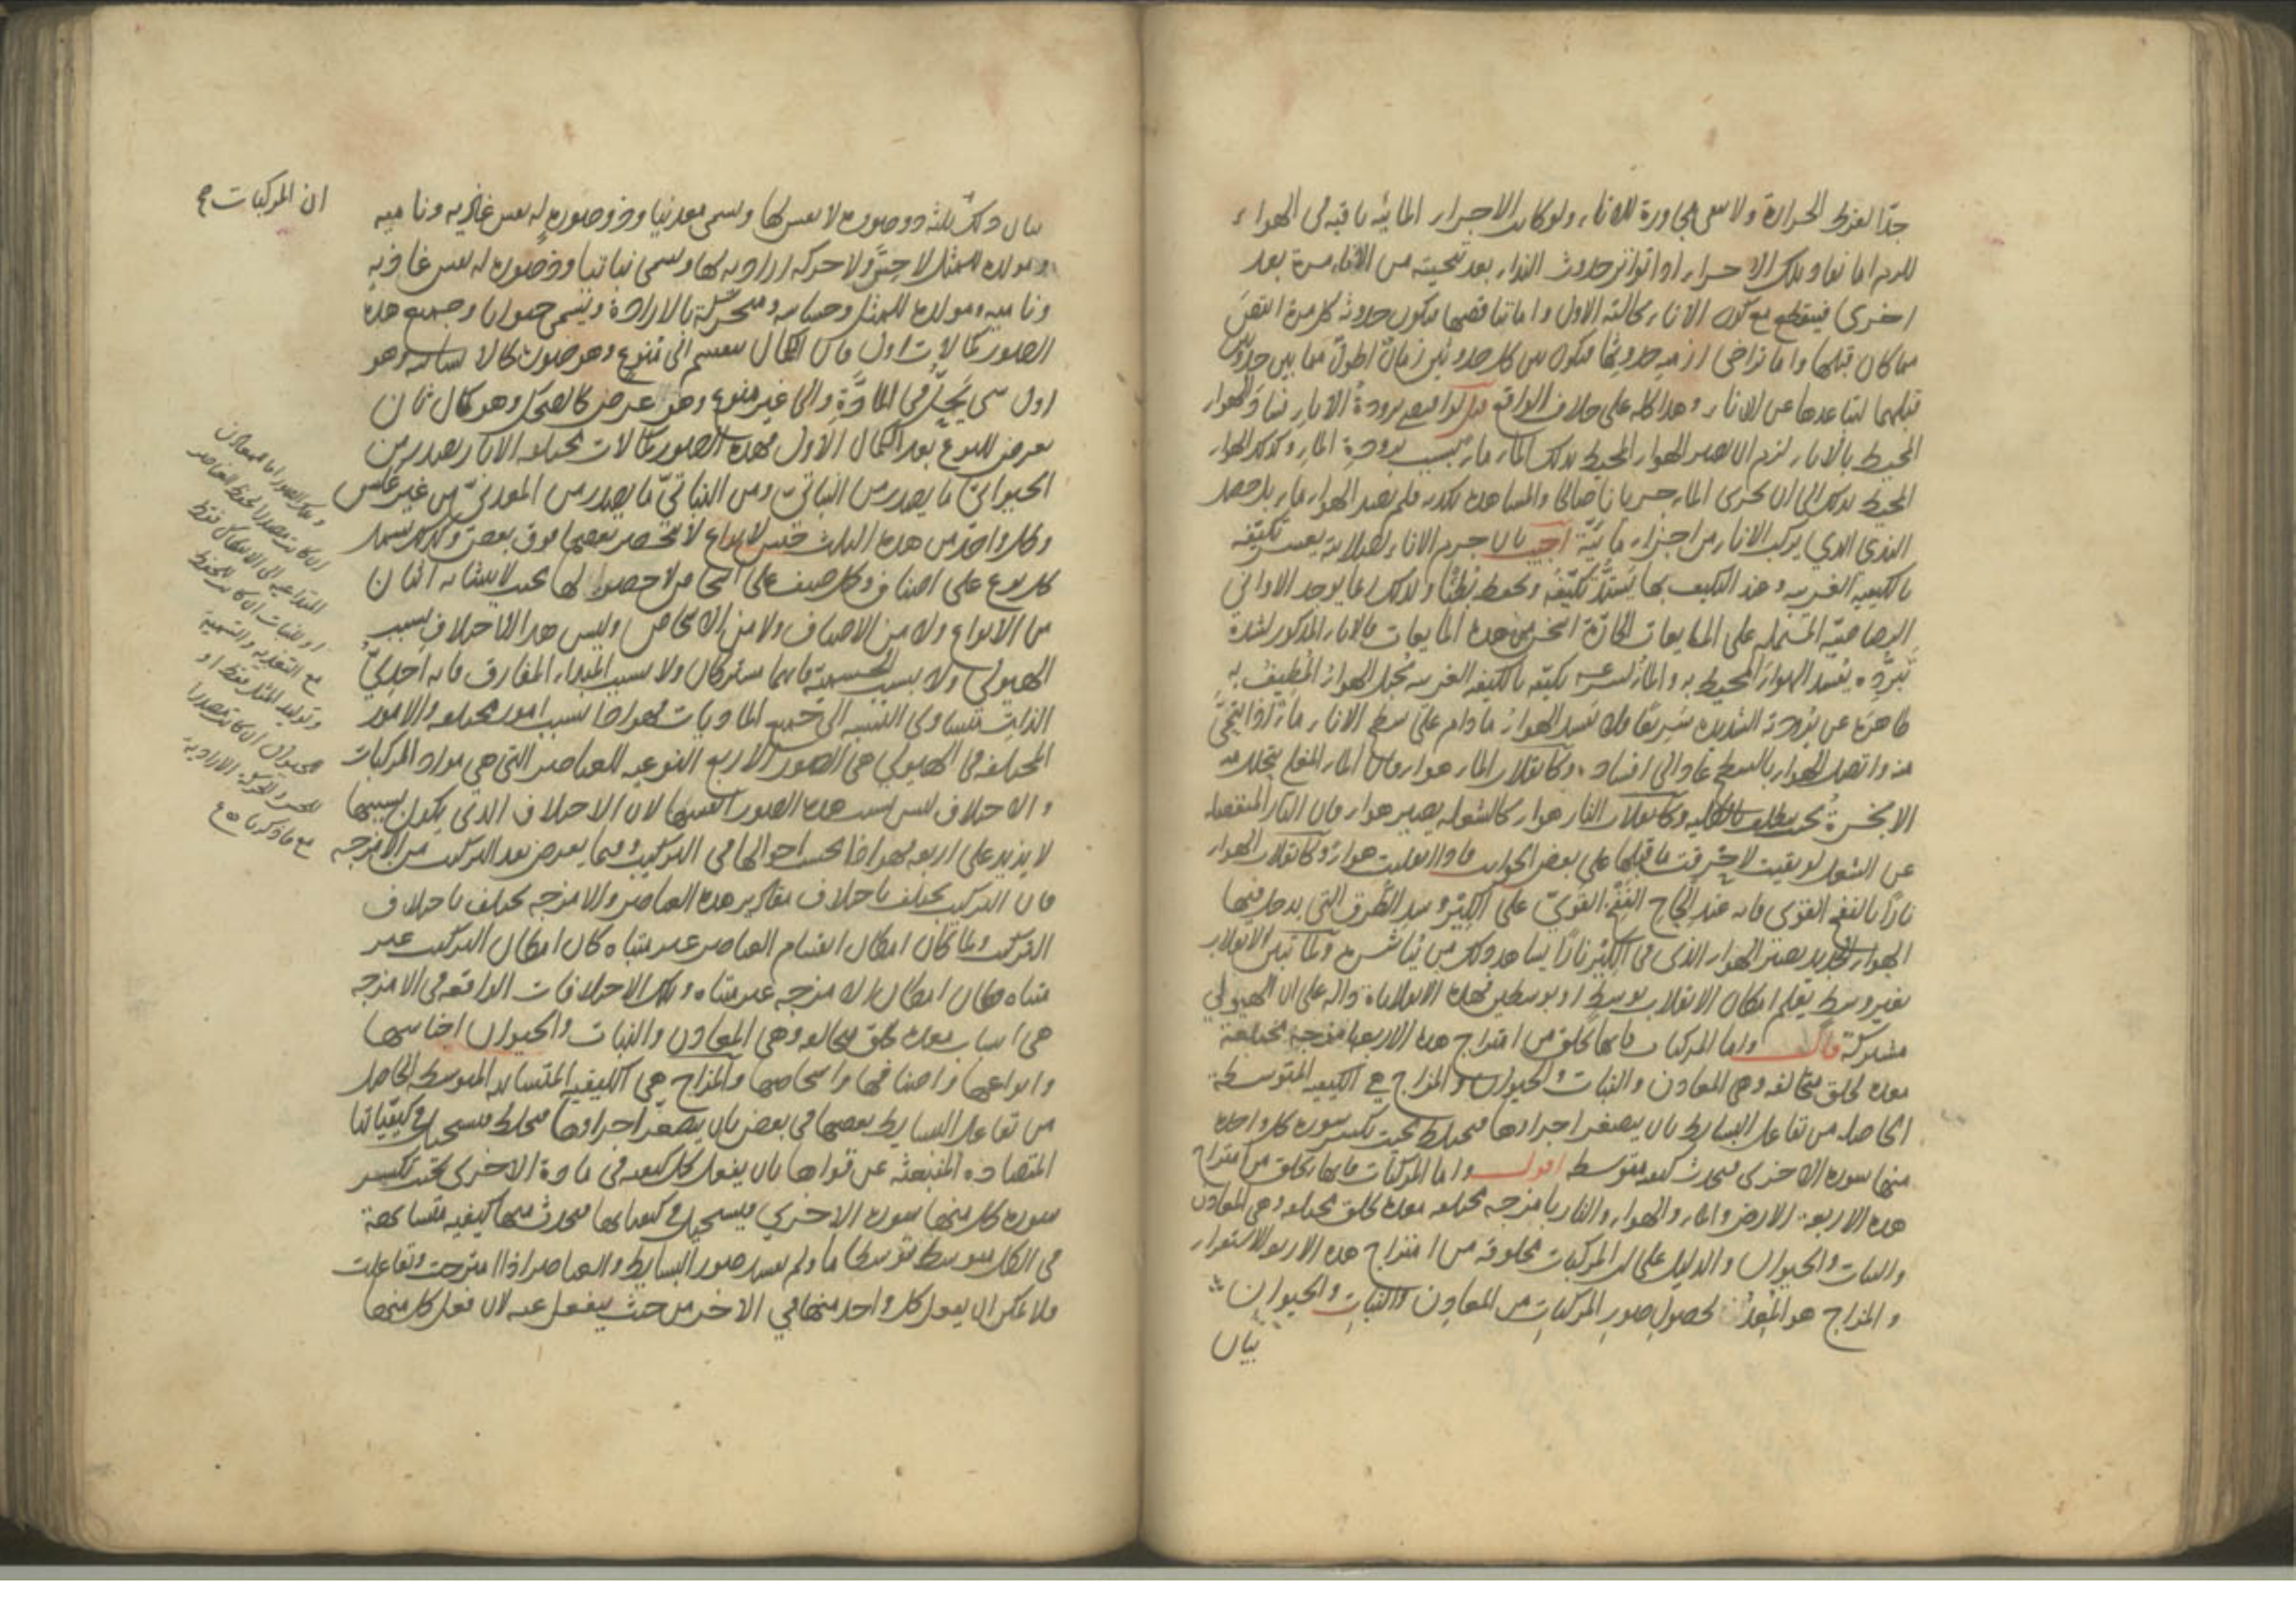 جدا لفرط الحرارة ولا سقى مجاورة للاناء ولو كانت الاجزاء المائيه باقيه فى الهواء
للزم اما نفاد تلك الاجزاء اذا تواتر حدوث النداء بعد تنحيته من الاناء مرة بعد
اخرى فينقطع مع كون الاناء بحالته الاول واما تناقصها فيكون حدوثه كل مرة انقص
مما كان قبلها واما تراخى ازمنه حدوثها فيكون بين كل حدوثين زمان اطول مما بين حدوثين
قبلهما لتباعدها عن الاناء وهذا كله على خلاف الواقع قيل لو اقتضى برودة الاناء فساد الهواء
المحيط بالاناء لزم ان يصير الهواء المحيط بذلك الماء ماء بسبب برودة الماء وكذلك الهواء
المحيط بذلك الى ان يجرى الماء جريانا صالحا والمشاهده تكذبه فلم يصر الهواء ماء بل حصل
الندى الذى يركب الاناء من اجزاء مائية اجيب بان جرم الاناء لصلابته يعسر تكيفه
بالكيفيه الغريبه وعند التكيف بها يشتد تكيفه ويحفظ بطئا ولذلك ما يوجد الاوانى
الرصاصيه المشتمله على المايعات الحارة اسخن من هذه المايعات فالاناء المذكور لشدة
تبرده يفسد الهواء المحيط به والماء لسرعه تكيفه بالكيفيه الغريبه يحيل الهواء المطيف به
ظاهره عن برودته الشديده سريعا فلا يفسد الهواء ما دام على سطح الاناء ماء اذا تنحى
منه واتصل الهواء بالسطح عاد الى افساده وكانقلاب الماء هواء فان الماء المغلى يتحلل منه
الابخرة بحيث يتلطف بالكليه وكانقلاب النار هواء كالشعله يصير هواء فان النار المنفصله
عن الشعل لو بقيت لاحرقت ما قابلها على بعض الجوانب فاذا انقلبت هواء وكانقلاب الهواء
نارا بالنفخ القوى فانه عند الحاح النفخ القوى على الكير وسد الطرق التى يدخل فيها
الهواء الجديد يصير الهواء الذى فى الكير نارا يشاهد ذلك من يباشره ولما تبين الانقلاب
بغير وسط يعلم امكان الانقلاب بوسط او بوسطين فهذه الانقلابات دالة على ان الهيولى
مشتركة قال واما المركبات فانها تخلق من امتزاج هذه الاربعة بامزجة مختلفة
معده لخلق متخالفه وهى المعادن والنبات والحيوان والمزاج هى الكيفيه المتوسطة
الحاصله من تفاعل البسايط بان يصغر اجزاؤها فيختلط بحيث تكسر سورة كل واحدة
منها سورة الاخرى فيحدث كيفيه متوسطه اقول واما المركبات فانها تخلق من امتزاج
هذه الاربعة الارض والماء والهواء والنار بامزجه مختلفه معدة لخلق مختلفه وهى المعادن
والنبات والحيوان والدليل على ان المركبات مخلوقه من امتزاج هذه الاربعة الاستقراء
والمزاج هو المعد لحصول صور المركبات من المعادن والنبات والحيوان
بيان
بيان ذلك ثلثه ذو صوره لا نفس لها ويسمى معدنيا وذو صورة له نفس غاذيه وناميه
ومولده للمثل لا حس ولا حركه اراديه لها ويسمى نباتيا وذو صورة له نفس غاذيه
وناميه ومولدة للمثل وحساسه ومتحركة بالارادة ويسمى حيوانا وجميع هذه
الصور كمالات اول فان الكمال ينقسم الى منوع وهو صورة كالانسانيه وهو
اول شى يحل فى المادة والى غير منوع وهو عرض كالضحك وهو كمال ثان
يعرض للنوع بعد الكمال الاول فهذه الصور كمالات مختلفه الاثار يصدر من
الحيوانى ما يصدر من النباتى ومن النباتى ما يصدر من المعدنى من غير عكس
وكل واحد من هذه الثلث جنس لانواع لا تنحصر بعضها فوق بعض وكذلك يشتمل
كل نوع على اصناف وكل صنف على اشخاص لا حصر لها بحيث لا يتشابه اثنان
من الانواع ولا من الاصناف ولا من الاشخاص وليس هذا الاختلاف بسبب
الهيولى ولا بسبب الجسميه فانهما مشتركان ولا بسبب المبداء المفارق فانه احدى
الذات متساوى النسبه الى جميع الماديات فهو اذا بسبب امور مختلفه والامور
المختلفه فى الهيولى هى الصور الاربع النوعيه للعناصر التى هى مواد المركبات
والاختلاف ليس بسبب هذه الصور انفسها لان الاختلاف الذى يكون بسببها
لا يزيد على اربعه فهو اذا بحسب احوالها فى التركيب وفيما يعرض بعد التركيب من الامزجه
فان التركيب يختلف باختلاف مقادير هذه العناصر والامزجه يختلف باختلاف
التركيب ولما كان امكان انقسام العناصر غير متناه كان امكان التركيب غير
متناه فكان امكان الامزجه غير متناه وتلك الاختلافات الواقعه فى الامزجه
هى اسباب معده لخلق مختلفه وهى المعادن والنبات والحيوان اجناسها
وانواعها واصنافها واشخاصها والمزاج هى الكيفيه المتشابهه المتوسطه الحاصله
من تفاعل البسايط بعضها فى بعض بان يصغر اجزاؤها فيختلط فيستحيل فى كيفياتها
المتضاده المنبعثه عن قواها بان يفعل كل كيفيه فى مادة الاخرى بحيث تكسر
سورة كل منها سورة الاخرى فيستحيل فى كيفياتها فيحدث منها كيفيه متشابهة
فى الكل متوسط توسطا ما ولم يفسد صور البسايط والعناصر اذا امتزجت وتفاعلت
فلا يمكن ان يفعل كل واحد منها فى الاخر من حيث ينفعل عنه لان فعل كل منها
ان المركبات
ان كانت مصدرا لحفظ العناصر
المتداعيه الى الانفكاك فقط
او للنبات ان كانت للحفظ
مع التغذيه والتنميه
وتوليد المثل فقط او
للحيوان ان كانت مصدرا
للحس والحركة الاراديه
مع ما ذكرنا